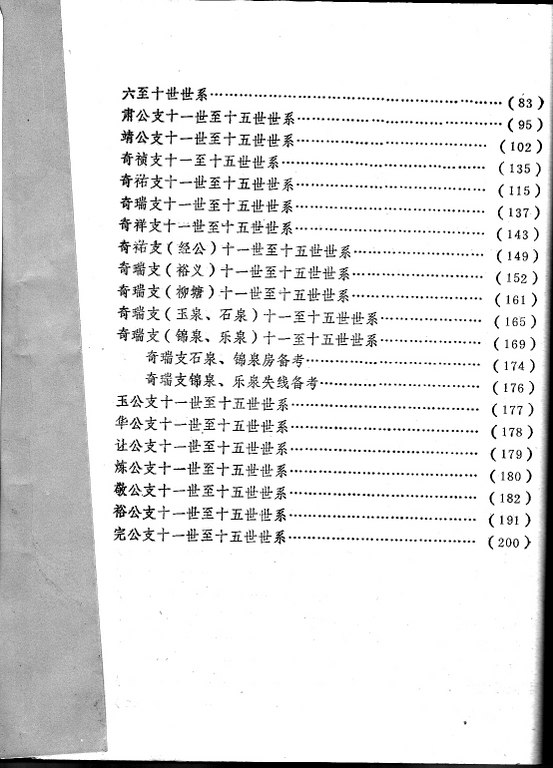 六至十世世系……(83)
肃公支十一世至十五世世系……(95)
靖公支十一世至十五世世系……(102)
奇祯支十一至十五世世系……(135)
奇祐支十一世至十五世世系……(115)
奇瑞支十一世至十五世世系……(137)
奇祥支十一世至十五世世系……(143)
奇祐支(经公)十一世至十五世世系……(149)
奇瑞支(裕义)十一世至十五世世系……(152)
奇瑞支(柳塘)十一世至十五世世系……(161)
奇瑞支(玉泉、石泉)十一至十五世世系……(165)
奇瑞支(锦泉、乐泉)十一至十五世世系……(169)
奇瑞支石泉、锦泉房备考……(174)
奇瑞支锦泉、乐泉失线备考……(176)
玉公支十一世至十五世世系……(177)
华公支十一世至十五世世系……(178)
让公支十一世至十五世世系……(179)
炼公支十一世至十五世世系……(180)
敬公支十一世至十五世世系……(182)
裕公支十一世至十五世世系……(191)
完公支十一世至十五世世系……(200)